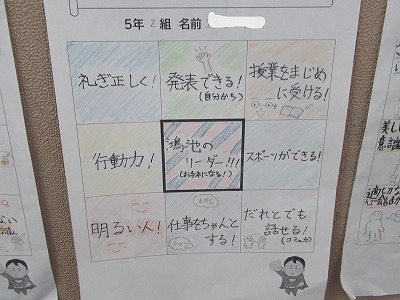 5年 2組 名前
礼ぎ正しく！
発表できる！
（自分から）
授業をまじめ
に受ける！
行動力！
鴻池の
リーダー!!!
（お手本になる！）
スポーツができる！
明るい人！
仕事をちゃんと
する！
だれとでも
話せる！
（コミュ力）